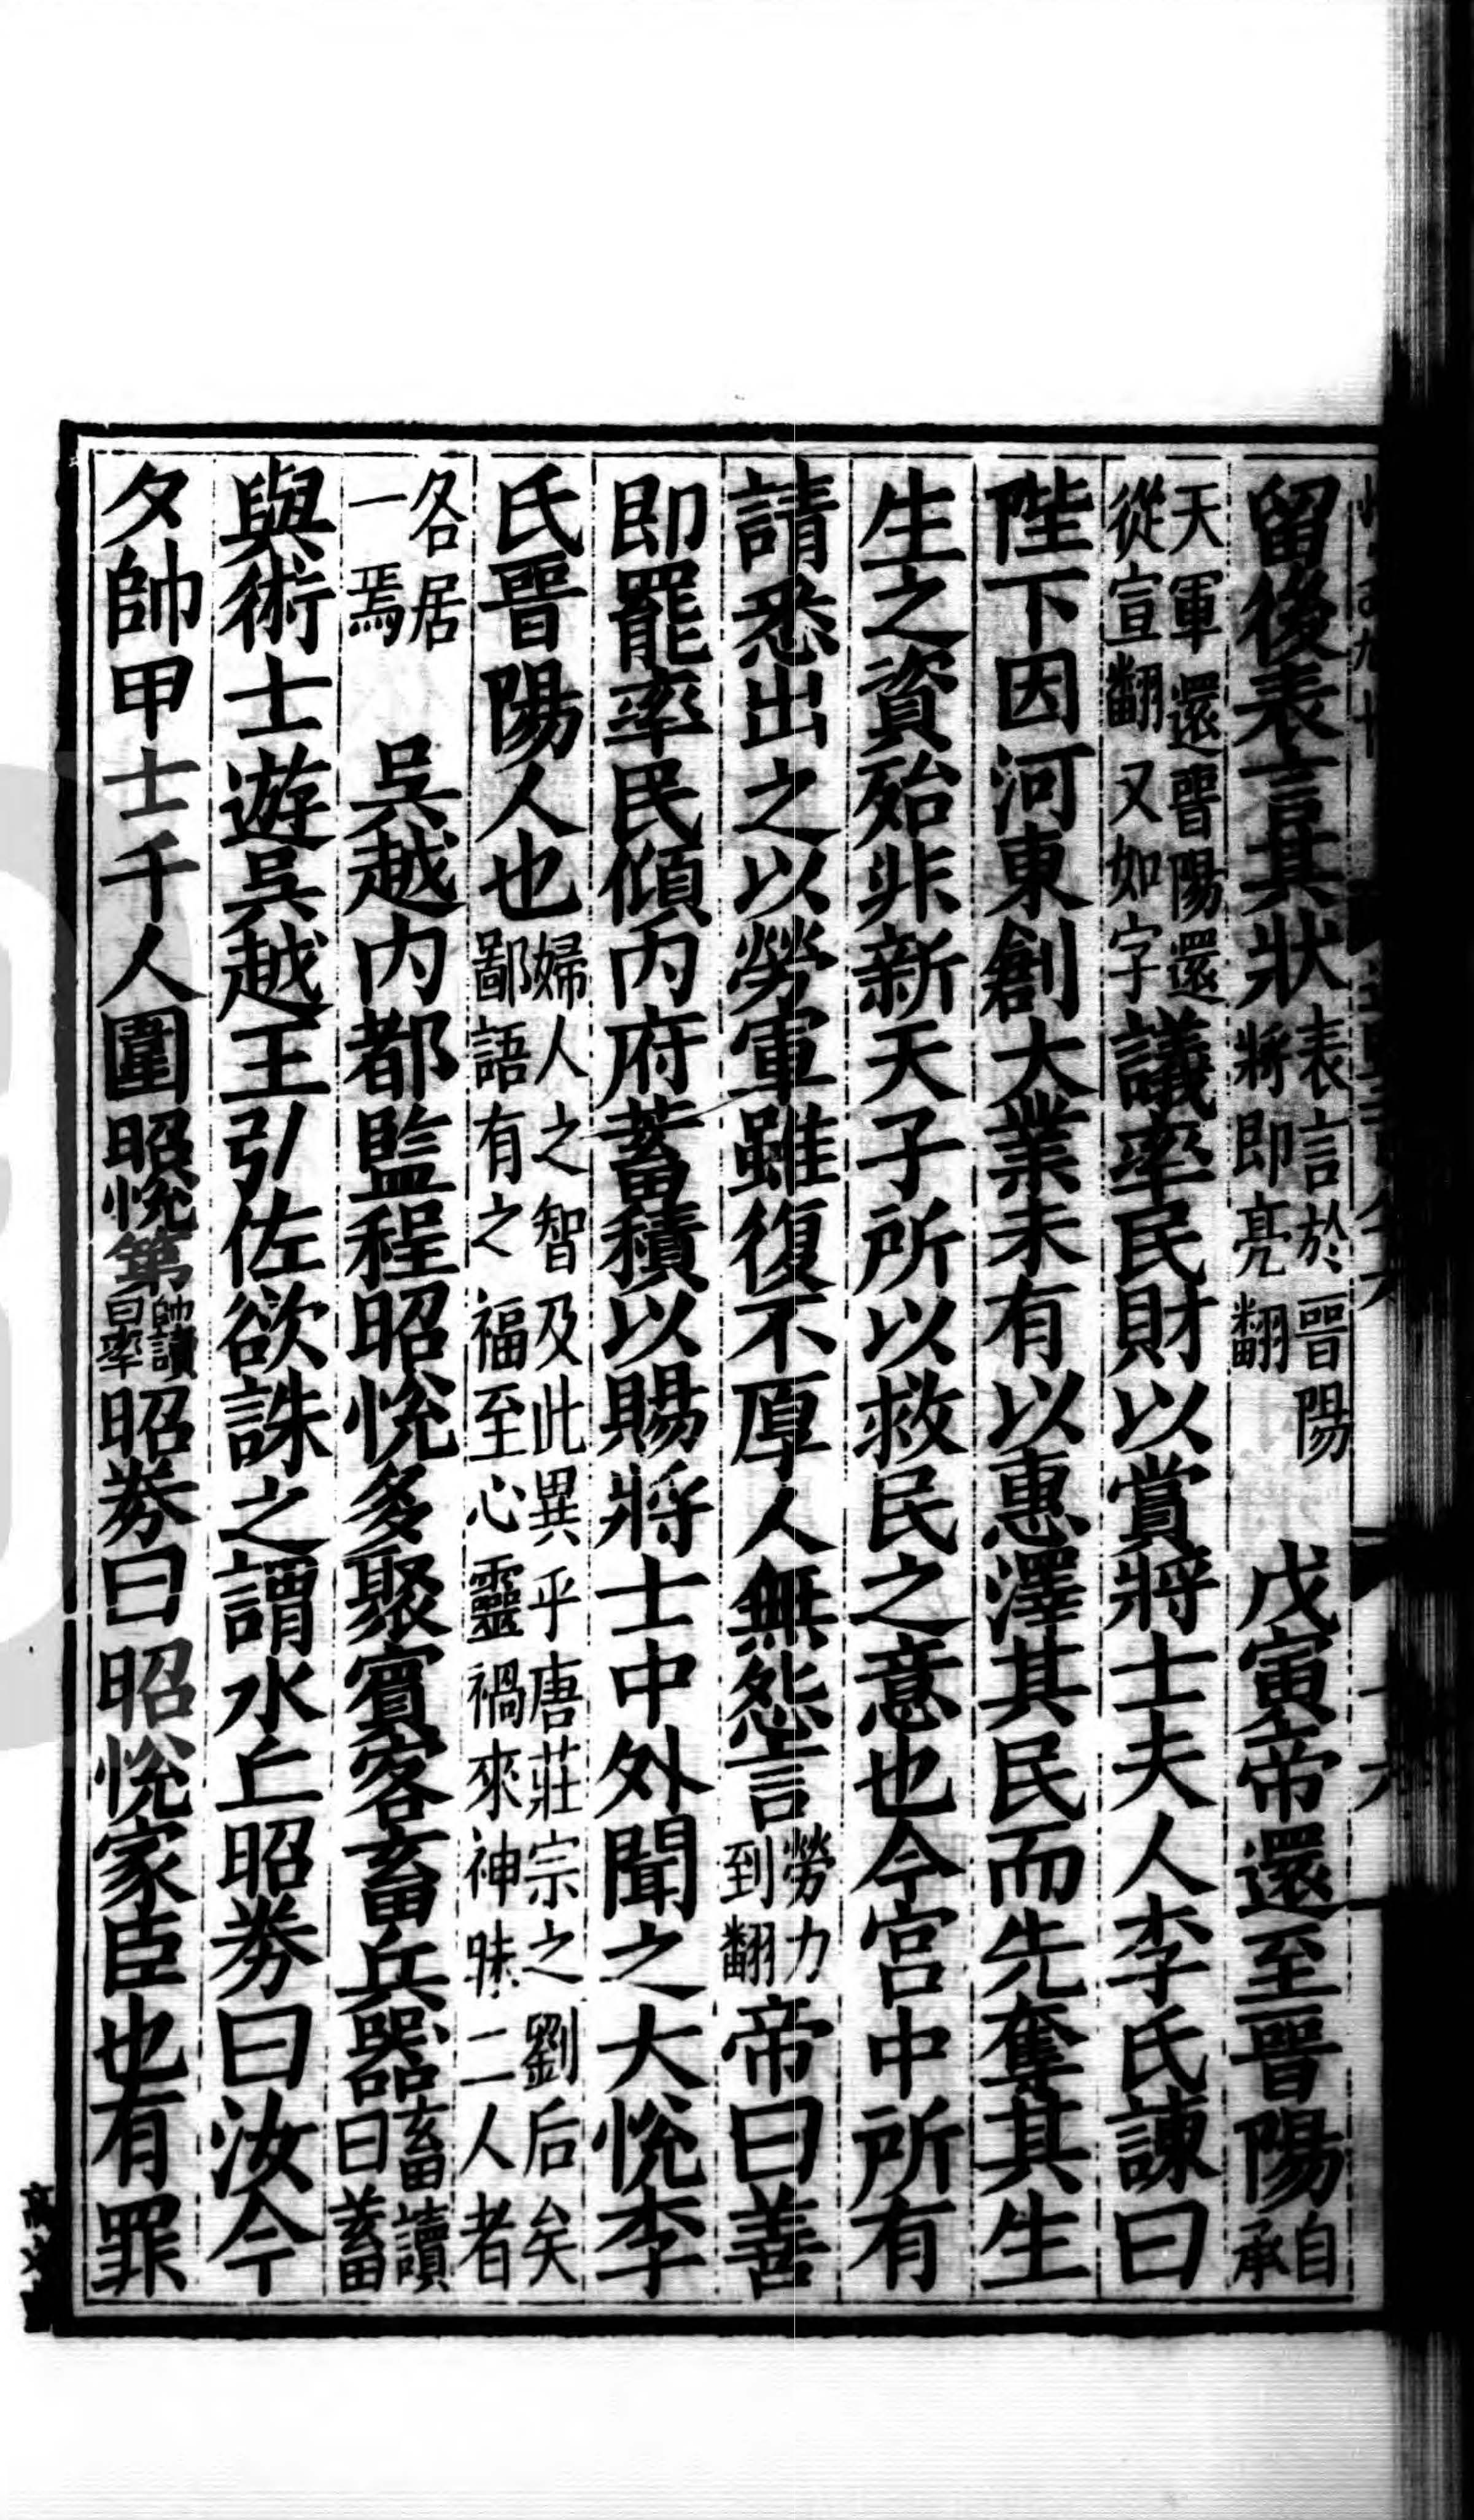 留後表言其狀表言於晉陽將即亮翻戊寅帝還至晉陽自承
天軍還晉陽還從宣翻又如字議率民財以賞將士夫人李氏諫曰
陛下因河東創大業未有以惠澤其民而先奪其生
生之資殆非新天子所以救民之意也今宮中所有
請悉出之以勞軍雖復不厚人無怨言勞力到翻帝曰善
即罷率民傾內府蓄積以賜將士中外聞之大悅李
氏晉陽人也婦人之智及此異乎唐莊宗之劉后矣鄙語有之福至心靈禍來神昧二人者
各居一焉吳越內都監程昭悅多聚賓客畜兵器畜讀曰蓄
與術士遊吳越王引佐欲誅之謂水丘昭券曰汝今
夕帥甲士千人圍昭悅第帥讀曰率昭券曰昭悅家臣也有罪